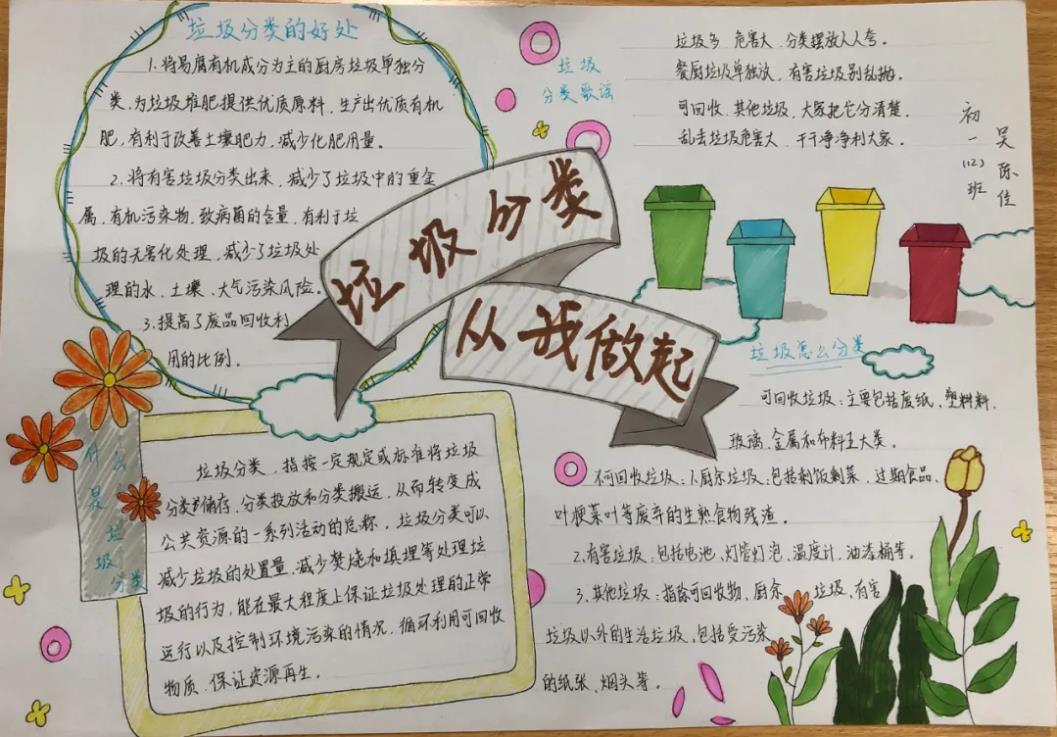 垃圾分类的好处
1.将易腐有机成分为主的厨房垃圾单独分
类,为垃圾堆肥提供优质原料,生产出优质有机
肥,有利于改善土壤肥力,减少化肥用量。
2.将有害垃圾分类出来,减少了垃圾中的重金
属、有机污染物、致病菌的含量,有利于垃
圾的无害化处理,减少了垃圾处
理的水、土壤、大气污染风险。
3.提高了废品回收利
用的比例。
垃圾
分类歌谣
垃圾多 危害大,分类摆放人人夸。
餐厨垃圾单独放,有害垃圾别乱抛。
可回收、其他垃圾,大家把它分清楚。
乱丢垃圾危害大,干干净净利大家。
初一(12)班
吴陈佳
垃圾分类
从我做起
什么
是
垃
圾
分类
垃圾分类,指按一定规定或标准将垃圾
分类储存、分类投放和分类搬运,从而转变成
公共资源的一系列活动的总称,垃圾分类可以
减少垃圾的处置量,减少焚烧和填埋等处理垃
圾的行为,能在最大程度上保证垃圾处理的正常
运行以及控制环境污染的情况,循环利用可回收
物质,保证资源再生。
垃圾怎么分类
可回收垃圾:主要包括废纸、塑料料、
玻璃、金属和布料五大类。
不可回收垃圾:1.厨余垃圾:包括剩饭剩菜、过期食品、
叶梗菜叶等废弃的生熟食物残渣。
2.有害垃圾:包括电池、灯管灯泡、温度计、油漆桶等。
3.其他垃圾:指除可回收物、厨余 垃圾、有害
垃圾以外的生活垃圾,包括受污染
的纸张、烟头等。